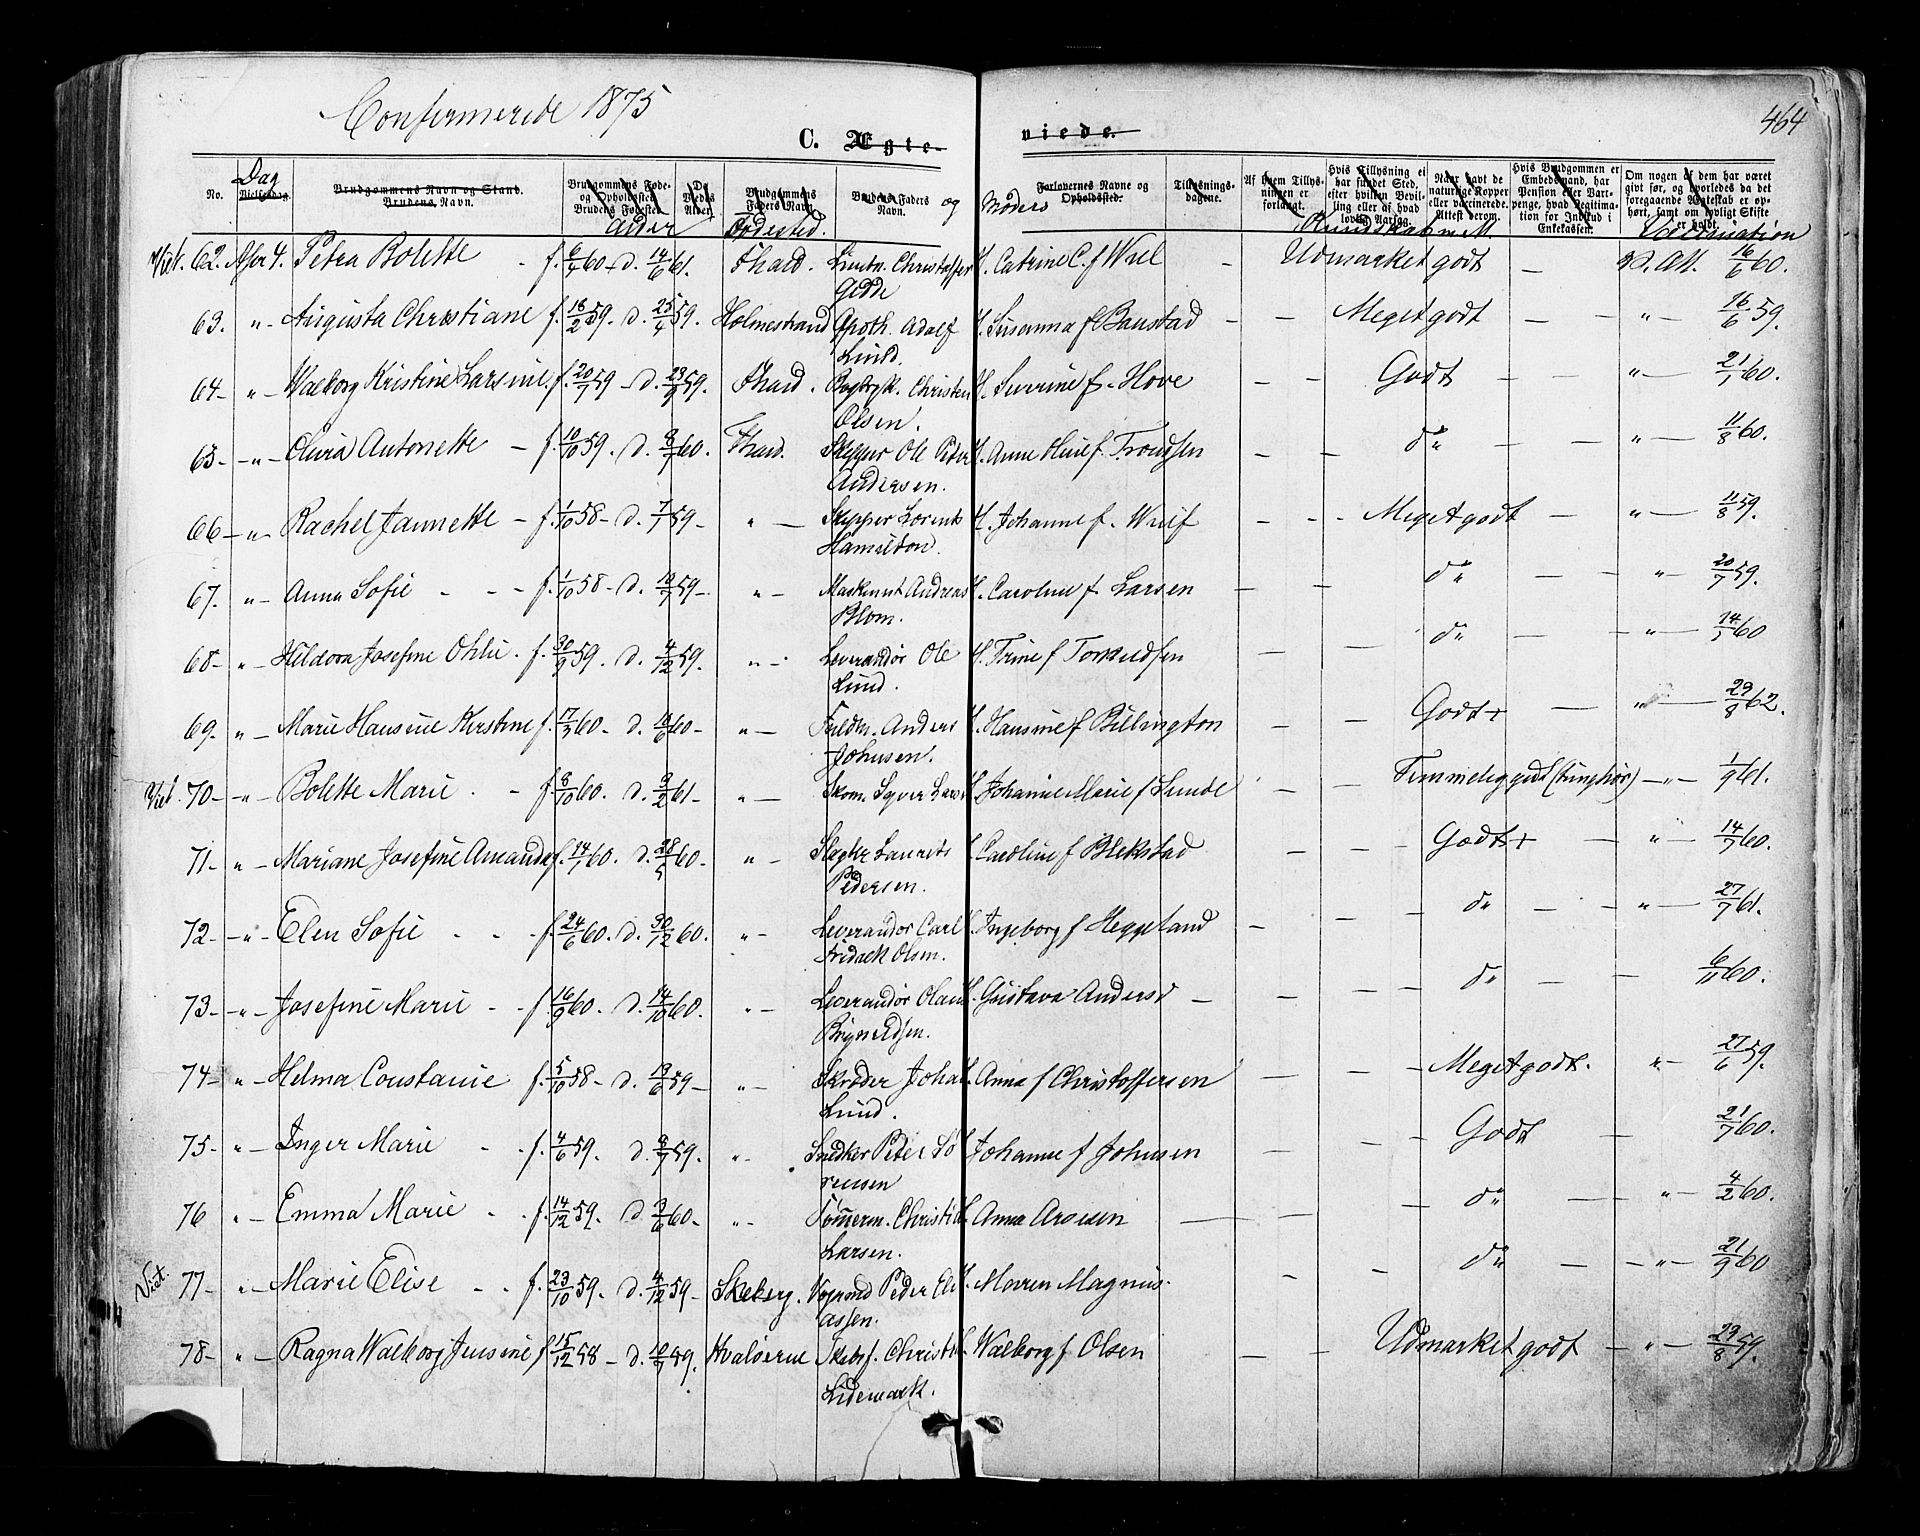 Confirmerede 1875
464
C. Ægte-
viede.
No. Dag Vielsesdag. Brudgommens Navn og Stand. Brudens Navn. Brudgommens Føde- og Opholdssted. Brudens Fødested. Alder De Viedes Alder. Brudgommens Faders Navn. Fødested. Brudens Faders Navn. og Moders Forlovernes Navne og Opholdssted. Tillysnings-dagene. Af hvem Tillysningen er forlangt. Hvis Tillysning ei har fundet Sted, efter hvilken Bevilling eller af hvad lovlig Aarsag. Kundskab m M. Naar havt de naturlige Kopper eller vaccinerede. Attest derom. Hvis Brudgommen er Embedsmand, har Pension eller Vartpenge, hvad Legitimation for Indskud i Enkekassen. Om nogen af dem har været givt før, og hvorledes da det foregaaende Ægteskab er ophørt, samt om lovligt Skifte er holdt. Vaccination
Viet. 62. Apr 4. Petra Bolette - f. 6/4 60 - d. 14/6 61. Fhald. Christoffer H. Catrine C. f Wiel - Udmærket godt - V. Att. 16/6 60.
Gedde
63. " - Augusta Christiane f. 18/2 59. d. 25/4 59. Holmestrand Apoth. Adolf H. Susanna f Baustad - - Meget godt - - " - 16/6 59.
Lund.
64. " - Walborg Kristine Larsine. f. 20/7 59 - d. 23/9 59. Fhald. Christen H. Severine f. Hove - - Godt - - " - 21/1 60.
Olsen.
65 - " - Olivia Antonette - f. 10/10 59. d. 8/7 60. Fhald. Skipper Ole Peder H. Anne f. Trondsen - - do - - " - 11/8 60.
Andersen.
66 - " - Rachel Jannette - f. 1/10 58 - d. 7/1 59 - " - Skipper Lorents H. Johanne f. Wulf - - - Meget godt - " - 11/8 59.
Hamilton.
67. " - Anna Sofie - - - f. 1/10 58 - d. 19/7 59 - " - Maskinist Andreas H. Caroline f. Larsen - - do - - " - 20/7 59.
Blom.
68 - " - Hildora Josefine Othlie. f. 30/9 59. d. 4/12 59. " - Leverandør Ole H. Trine f - - do - - " - 14/1 60
Lund.
69. " - Marie Hansine Kirstine f. 17/3 60. d. 10/6 60 - " - Anders H. Hansine f Billington - - Godt + - " - 29/8 62.
Johnsen.
Viet. 70 - " - Bolette Marie - f. 8/10 60. d. 9/2 61 - " - Skom. Syver H. Johanne Marie f Lunde - - Temmelig godt (tunghør) - " - 1/9 61.
71 - " - Mariane Josefine Amanda f. 14/1 60. d. 28/5 60 - " - Laurits H. Caroline f Blekstad - - - Godt + - " - 14/7 60.
Pedersen.
72 - " - Elen Sofie - - f. 24/6 60. d. 30/12 60. " - Leverandør Carl H. Ingeborg f Heggeland - - - do - - " - 27/7 61.
Fredrik Olsen.
73 - " - Josefine Marie - - f. 16/9 60. d. 14/10 60. " - Leverandør H. Gustava Anders - - - do - - 6/11 60.
Brynildsen.
74 - " - Helma Constanse f. 5/10 58 - d. 19/6 59 - " - Skræder Johan H. Anna f Christoffersen - - - Meget godt. " - 27/6 59.
Lund.
75 - " - Inger Marie - - f. 4/6 59. d. 9/7 59. " - Snedker Peter Sø H. Johanne f Johnsen - - - Godt - 21/7 60.
rensen
76 " - Emma Marie - - f. 14/12 59. d. 3/6 60 - " - Tømmerm. Christian H. Anna - - - do - " - 4/2 60.
Larsen.
Viet. 77 - " - Marie Elise - - f. 23/10 59. d. 4/12 59 - Skeberg. Vognmd Peder Eli H. Maren Magnus. - - - do - - " - 21/9 60
assen.
78 - " - Ragna Walborg Jensine f 15/12 58 - d. 10/7 59. Hvaløerne Christi H. Walborg f Olsen - - Udmærket godt - " - 29/8 59.
Lidemark.